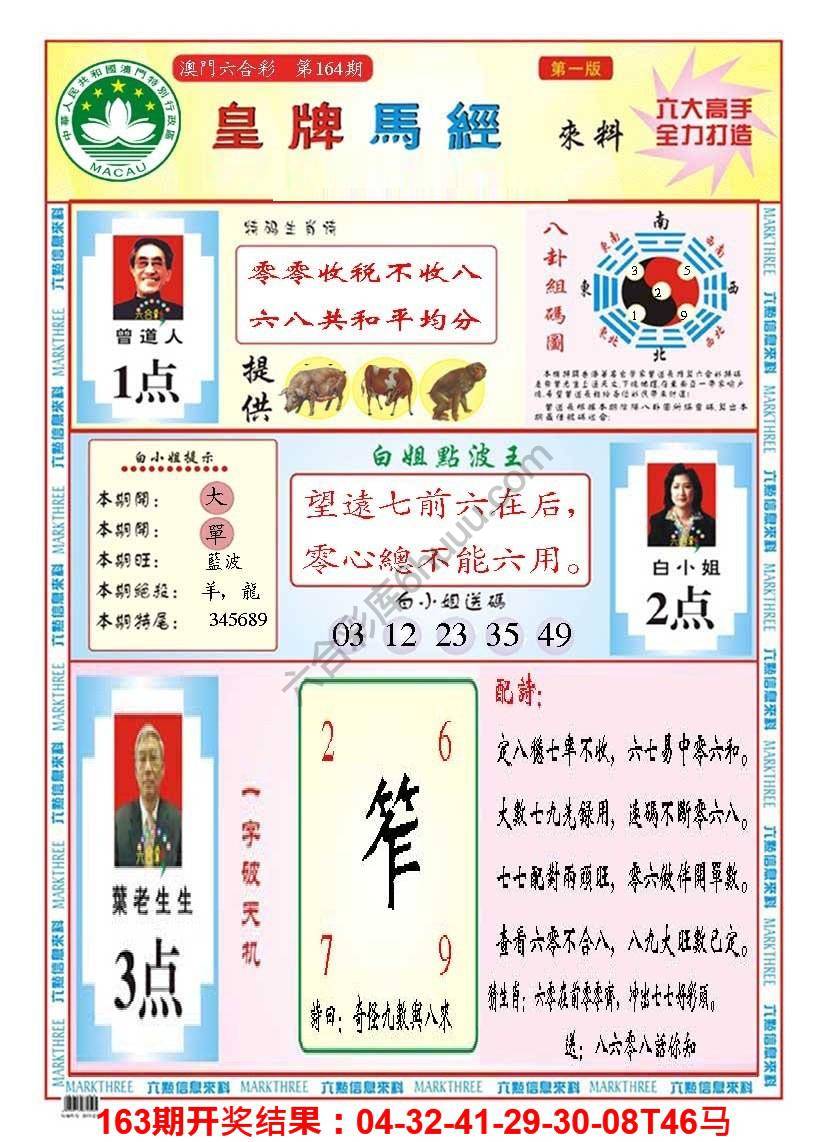 澳門六合彩 第164期
第一版
中華人民共和國澳門特別行政區
MACAU
皇牌馬經
來料
六大高手
全力打造
曾道人
1点
特码生肖诗
零零收税不收八
六八共和平均分
提供
八卦組碼圖
南
東南
西南
東
西
東北
西北
北
3
5
2
1
9
白小姐提示
本期開： 大
本期開： 單
本期旺： 藍波
本期絕殺： 羊，龍
本期特尾： 345689
白姐點波王
望遠七前六在后，
零心總不能六用。
白小姐送碼
03 12 23 35 49
白小姐
2点
葉老生生
3点
一字破天机
2 6
笮
7 9
詩曰：奇怪九數與八來
配詩：
定八穩七準不收，六七易中零六和。
大數七九先錄用，連碼不斷零六八。
七七配對兩頭旺，零六做伴開單數。
查看六零不合八，八九大旺數已定。
猜生肖：六零在前零零齊，沖出七七好彩頭。
送：八六零八話你知
MARKTHREE 六點信息來料 MARKTHREE 六點信息來料 MARKTHREE 六點信息來料 MARKTHREE 六點信息來料
六合彩库6huuu.com
163期开奖结果：04-32-41-29-30-08T46马